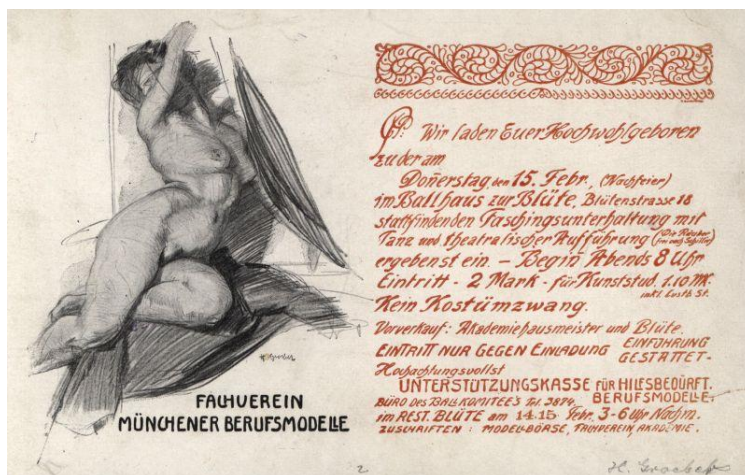 FACHVEREIN
MÜNCHENER BERUFSMODELLE
P.P. Wir laden Euer Hochwohlgeboren
zu der am
Doñerstag, den 15. Febr., (Nachfeier)
im Ballhaus zur Blüte, Blütenstrasse 18
stattfindenden Faschingsunterhaltung mit
Tanz und theatralischer Aufführung (Die Räuber frei nach Schiller)
ergebenst ein. – Begiñ Abends 8 Uhr
Eintritt - 2 Mark - für Kunststud. 1.10 Mk.
inkl. Lustb. St.
Kein Kostümzwang.
Vorverkauf: Akademiehausmeister und Blüte.
EINTRITT NUR GEGEN EINLADUNG EINFÜHRUNG
GESTATTET.
Hochachtungsvollst
UNTERSTÜTZUNGSKASSE FÜR HILFSBEDÜRFT.
BÜRO DES BALLKOMITEES Tel. 3874. BERUFSMODELLE.
im REST. BLÜTE am 14.15. Febr. 3-6 Uhr Nachm.
ZUSCHRIFTEN: MODELLBÖRSE, FACHVEREIN, AKADEMIE.
2